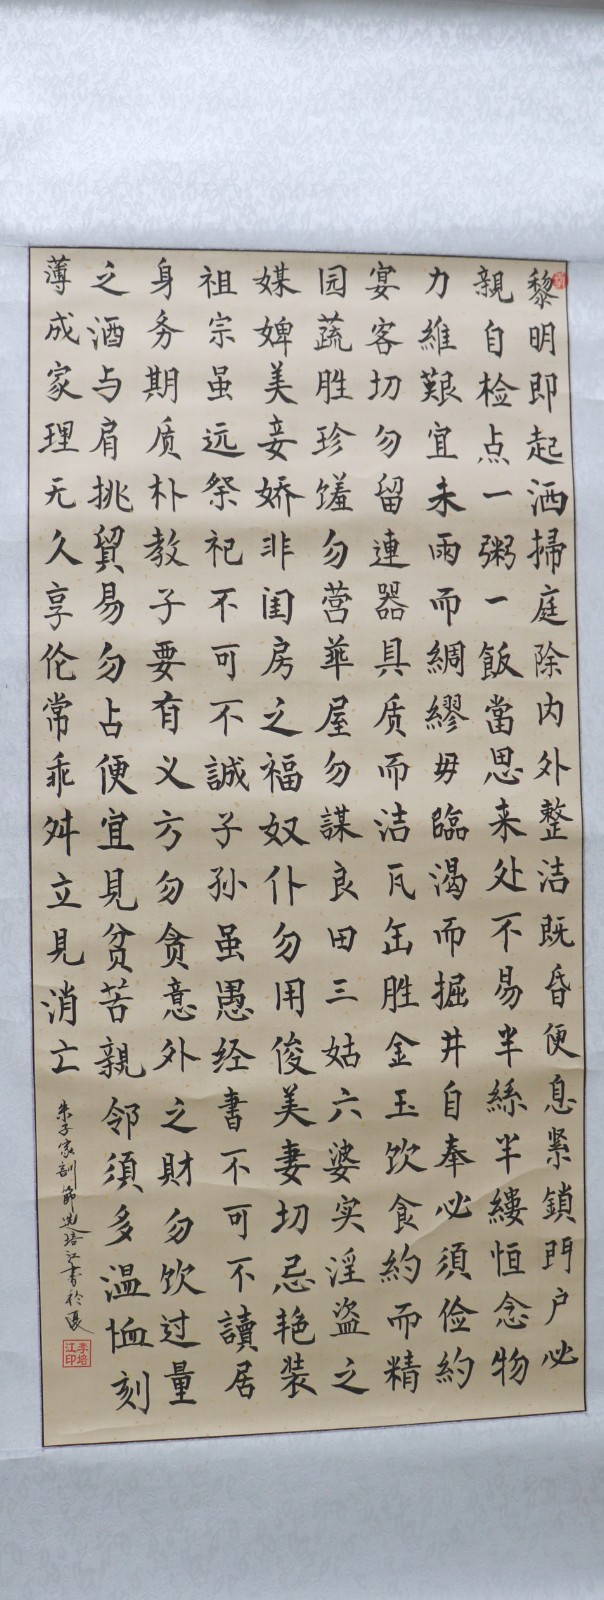 黎明即起洒掃庭除内外整洁既昏便息紧鎖門户必
親自检点一粥一飯當思来处不易半絲半縷恒念物
力維艱宜未雨而綢繆毋臨渴而掘井自奉必須俭約
宴客切勿留連器具质而洁瓦缶胜金玉饮食約而精
园蔬胜珍馐勿营華屋勿謀良田三姑六婆实淫盗之
媒婢美妾娇非闺房之福奴仆勿用俊美妻切忌艳装
祖宗虽远祭祀不可不誠子孙虽愚经書不可不讀居
身务期质朴教子要有义方勿贪意外之財勿饮过量
之酒与肩挑貿易勿占便宜見贫苦親邻須多温恤刻
薄成家理无久享伦常乖舛立見消亡
朱子家訓節選培江書於夏
李培江印